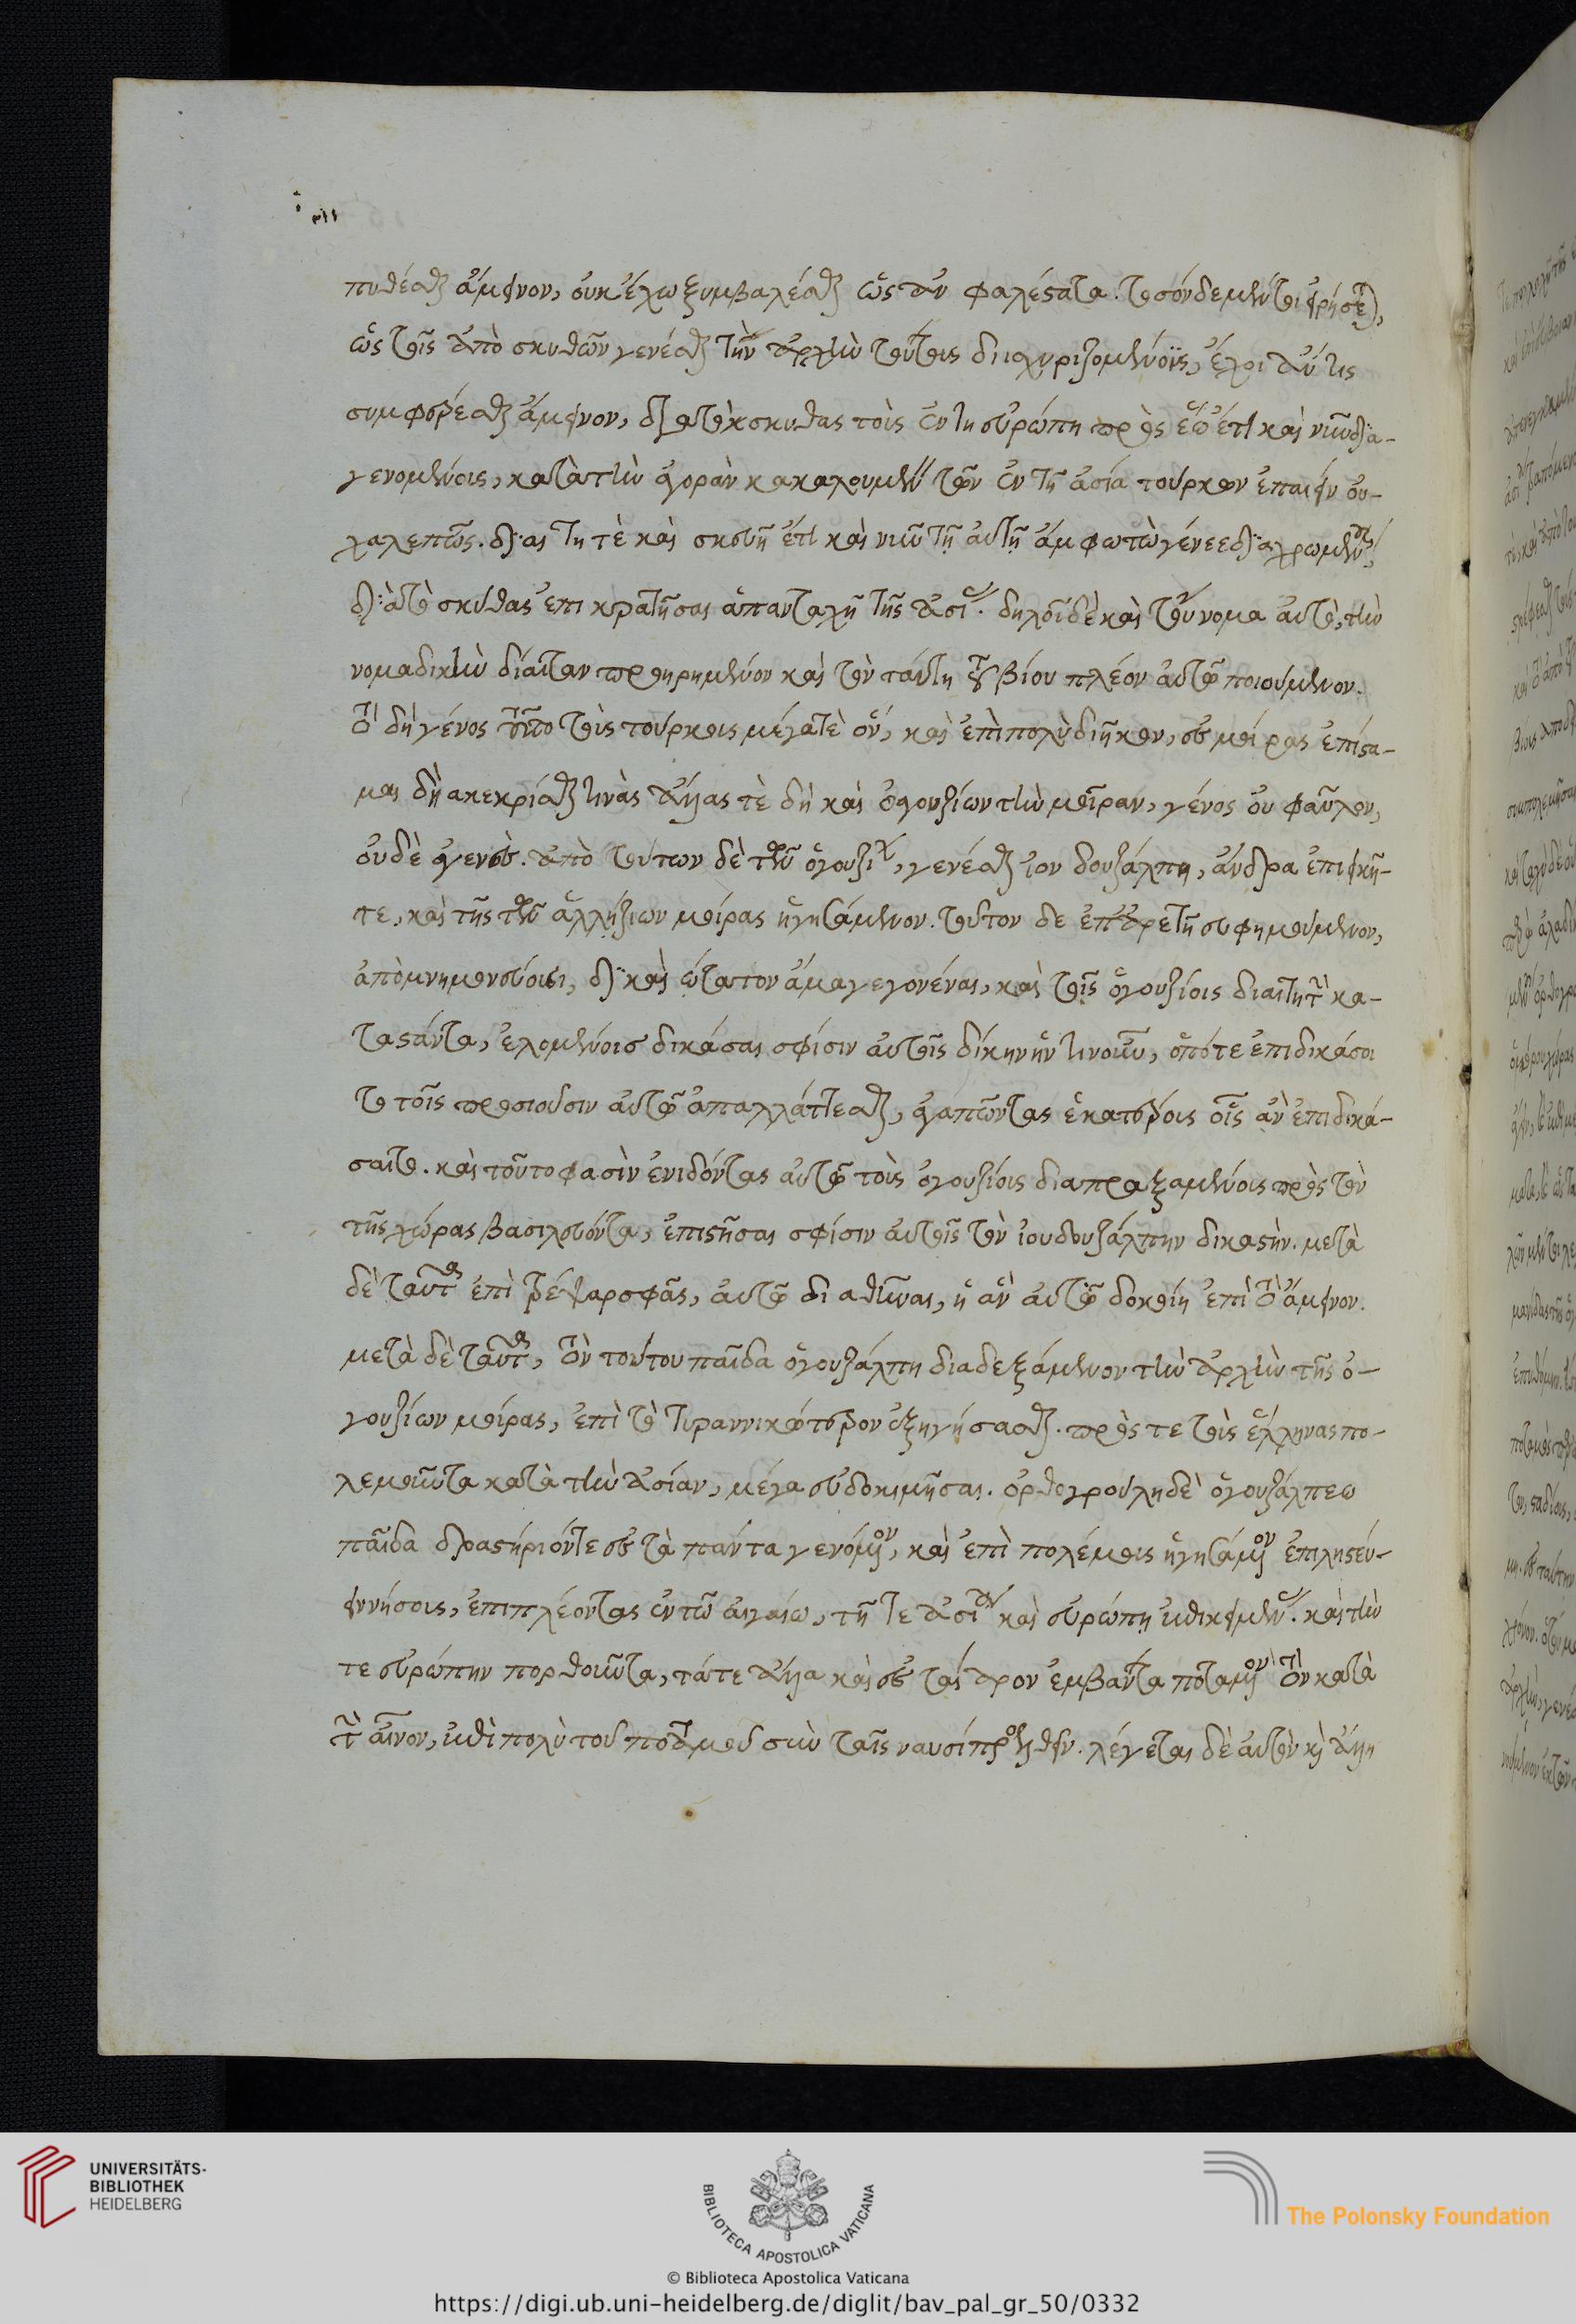 πυθέσθαι ἄμεινον, οὐκ ἔχω ξυμβαλέσθαι ὡς ἂν φαλέστατα. τοσόνδε μέντοι εἰρήσεται,
ὡς τοῖς ἀπὸ σκυθῶν γενέσθαι τὴν ἀρχὴν τούτοις διισχυριζομένοις, ἔχοι ἄν τις
συμφέρεσθαι ἄμεινον, διὰ τὸ σκυθας τοὺς ἐν τη εὐρώπη πρὸς ἕω ἔτι καὶ νῦν δια-
γενομένοις, κατὰ τὴν ἀγορὰν κακαλουμένην τῶν ἐν τῇ ἀσία τούρκων ἐπαΐειν οὐ
χαλεπῶς. διαίτη τὲ καὶ σκευῇ ἔτι καὶ νῦν τῇ αὐτῇ ἄμφω τὼ γένεε διαχρωμένους,
διὰ τὸ σκύθας ἐπικρατῆσαι ἁπανταχῆ τῆς ἀσίας. δηλοῖ δὲ καὶ τοὔνομα αὐτὸ, τὴν
νομαδικὴν δίαιταν προηρημένον καὶ τὸν ταύτη τοῦ βίου πλέον αὐτῷ ποιούμενον.
τὸ δὴ γένος τοῦτο τοὺς τούρκους μέγα τὲ ὂν, καὶ ἐπὶ πολὺ διῆκον, ἐς μοίρας ἐπίστα-
μαι δὴ ακεκρίσθαι τινὰς ἄλλας τὲ δὴ καὶ ὀγουζίων τὴν μοῖραν, γένος οὐ φαῦλον,
οὐδὲ ἀγενὲς. ἀπὸ τούτων δὲ τῶν ὀγουζίων, γενέσθαι ιον δουζάλπη, ἄνδρα ἐπιεικῆ
τε, καὶ τῆς τῶν ἀλληζιων μοίρας ἡγησάμενον. τοῦτον δε ἐπ' ἀρετῇ εὐφημούμενον,
ἀπομνημονεύουσι, διὸ καὶ ώτατον ἅμα γεγονέναι, καὶ τοῖς ὀγουζίοις διαιτητὴν κα-
ταστάντα, ἑλομένοισ δικάσαι σφίσιν αὐτοῖς δίκην ἥν τιν οὖν, ὁπότε ἐπιδικάσοι
το τοῖς προσιοῦσιν αὐτῷ ἀπαλλάττεσθαι, ἀγαπῶντας ἑκατέροις οἷς ἂν ἐπιδικά-
σαιτο. καὶ τοῦτο φασὶν ἐνιδόντας αὐτῷ τοὺς ὀγουζίοις διαπραξαμένοις πρὸς τὸν
τῆς χώρας βασιλεύοντα, ἐπιστῆσαι σφίσιν αὐτοῖς τὸν ἰουδουζάλπην δικαστὴν. μετὰ
δὲ ταῦτα ἐπιτρέψαι σφᾶς, αὐτῷ διαθεῖναι, ἡ ἂν αὐτῷ δοκοίη ἐπὶ τὸ ἄμεινον.
μετὰ δὲ ταῦτα, τὸν τούτου παῖδα ὀγουζάλπη διαδεξάμενον τὴν ἀρχὴν τῆς ὀ-
γουζίων μοίρας, ἐπὶ τὸ τυραννικώτερον ἐξηγήσασθαι. πρὸς τε τοὺς ἕλληνας πο-
λεμοῦντα κατὰ τὴν ἀσίαν, μέγα εὐδοκιμῆσαι. ορθογρούλη δὲ ὀγουζάλπεω
παῖδα δραστήριόν τε ἐς τὰ πάντα γενόμενον, καὶ ἐπὶ πολέμοις ἡγησάμενον ἐπὶ ληστεύ-
ειν νήσοις, ἐπιπλέοντας ἐν τῶ αἰγαίω, τῇ τε ἀσία καὶ εὐρώπῃ . καὶ τήν
τε εὐρώπην πορθοῦντα, τά τε ἄλλα καὶ ἐς ταίαρον ἐμβάντα ποταμὸν τὸν κατὰ
τὴν αἶνον, ἐπὶ πολὺ τοῦ ποταμοῦ σὺν ταῖς ναυσὶ προελθεῖν. λέγεται δὲ αὐτὸν καὶ ἄλλη